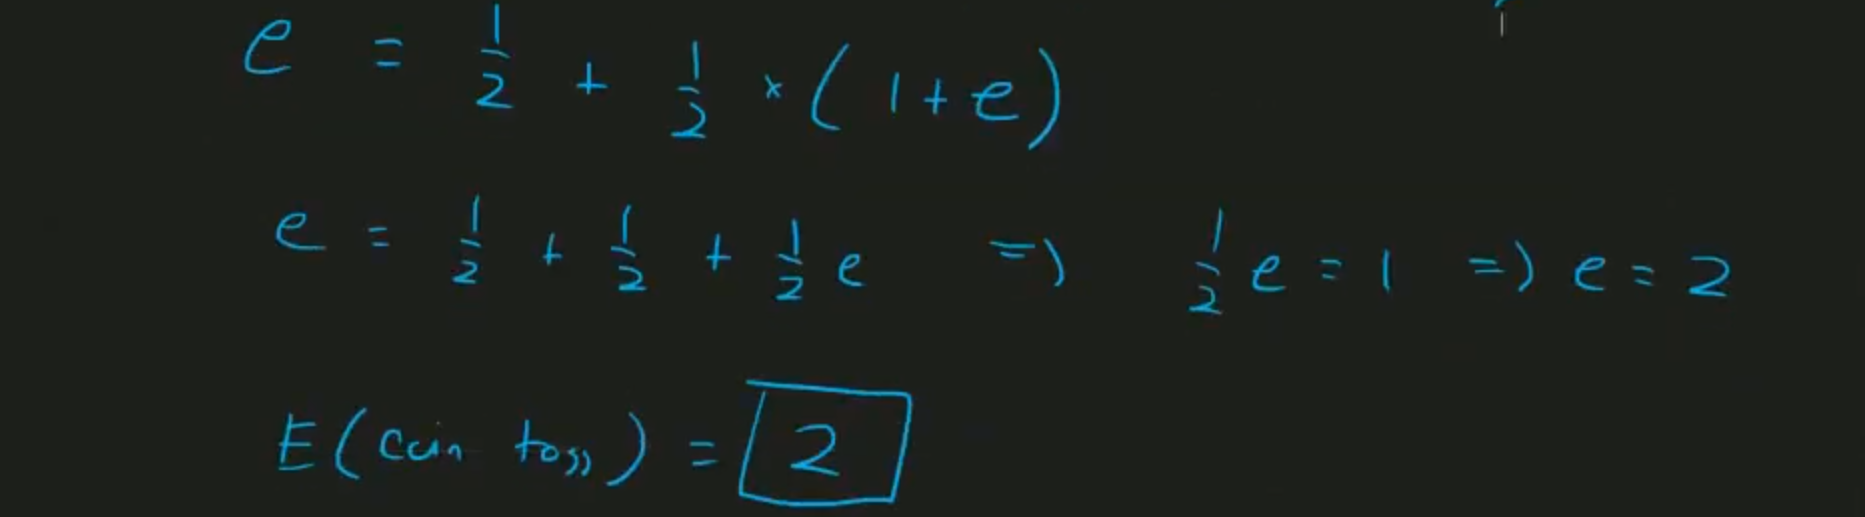 e = 1/2 + 1/2 × (1+e)
e = 1/2 + 1/2 + 1/2 e => 1/2 e = 1 => e = 2
E(coin toss) = 2